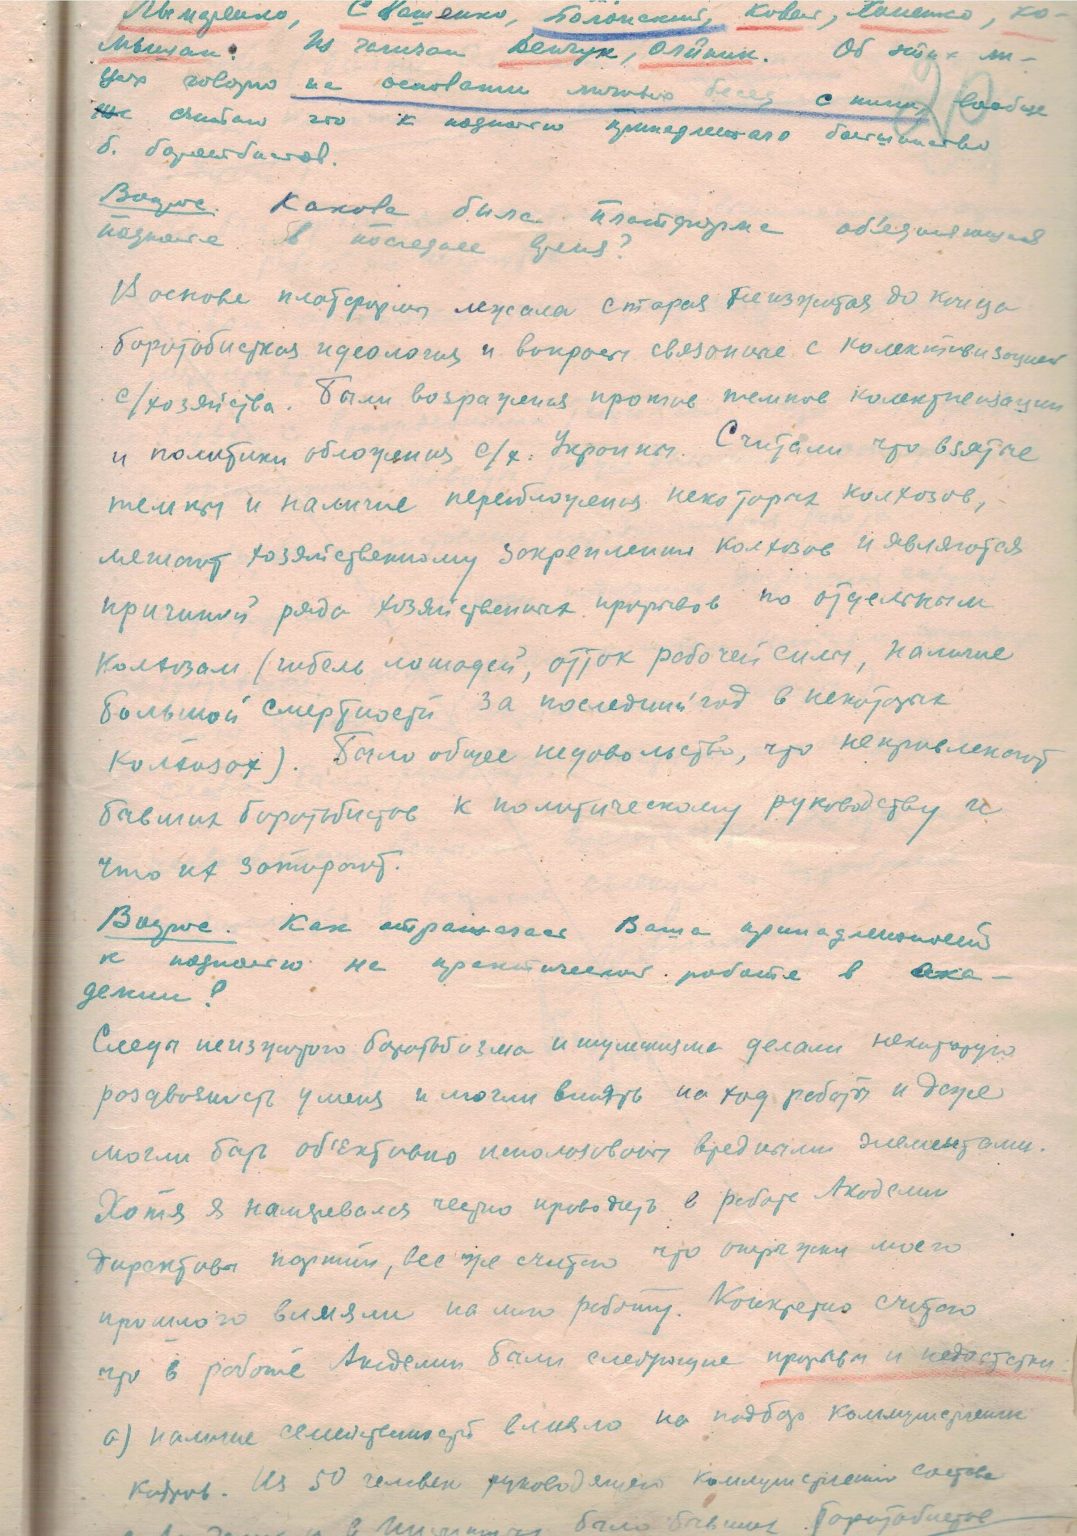 Полонский, Ковал,
Из галичан Демчук, Олійник. Об этих ли-
цах говорю на основании личных бесед с ними, вообще
же считаю что к подполью принадлежало большинство
б. боротьбистов.
Вопрос. Какова была платформа об'единяющая
подполье в последнее время?
В основе платформы лежала старая неизжитая до конца
боротьбисткая идеология и вопросы связаные с колективизацией
с/хозяйства. Были возражения против темпов колективизации
и политики обложения с/х. Украины. Считали что взятые
темпы и наличие переобложения некоторых колхозов,
мешают хозяйственному закреплению колхозов и являются
причиной ряда хозяйственых прорывов по отдельным
колхозам (гибель лошадей, отток рабочей силы, наличие
большой смертности за последний год в некоторых
колхозах). Было общее недовольство, что не привлекают
бывших боротьбистов к политическому руководству и
что их затирают.
Вопрос. Как отражалась Ваша принадлежность
к подполью на практической работе в ака-
демии?
Следы неизжитого боротьбизма и шумскизма делали некоторую
раздвояность у меня и могли влиять на ход работы и даже
могли быть об'ективно использованы вредными элементами.
Хотя я намеревался честно проводить в работе Академии
директивы партии, все же считаю что отрыжки моего
прошлого влияли на мою работу. Конкретно считаю
что в работе Академии были следующие прорывы и недостатки:
а) наличие семейственности влияло на подбор коммунистических
кадров. Из 50 человек руководящего коммунистического состава
было бывших боротьбистов